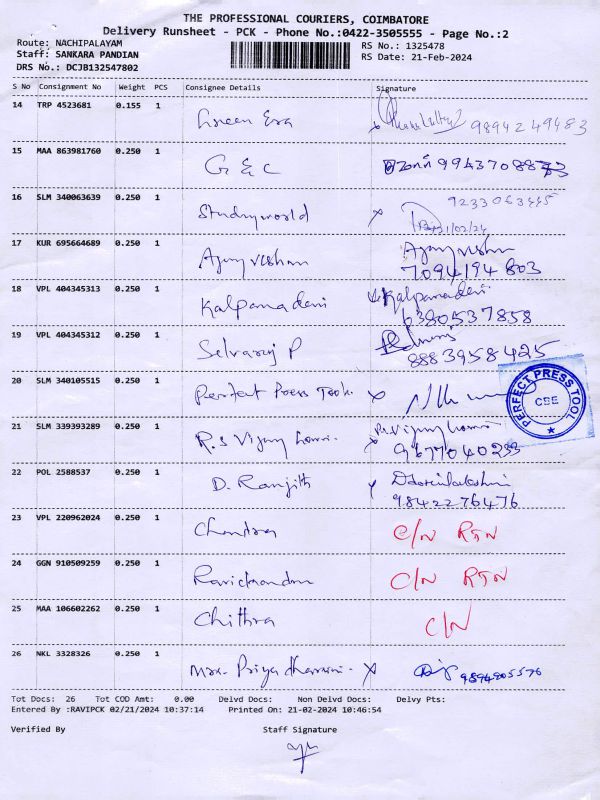 THE PROFESSIONAL COURIERS, COIMBATORE
Delivery Runsheet - PCK - Phone No.:0422-3505555 - Page No.:2
Route: NACHIPALAYAM
Staff: SANKARA PANDIAN
DRS No.: DCJB132547802
RS No.: 1325478
RS Date: 21-Feb-2024
S No Consignment No Weight PCS Consignee Details Signature
14 TRP 4523681 0.155 1 Green Era 98942 49483
15 MAA 863981760 0.250 1 G & C
16 SLM 340063639 0.250 1 Studyworld x 9233063445
21/02/24
17 KUR 695664689 0.250 1 Ajay vishnu Ajay vishnu
7094194803
18 VPL 404345313 0.250 1 Kalpana devi Kalpana devi
6380537858
19 VPL 404345312 0.250 1 Selvaraj P
8883958425
20 SLM 340105515 0.250 1 Perfect Press Tools x PERFECT PRESS TOOL CBE
21 SLM 339393289 0.250 1 R.S Vijay
9677040233
22 POL 2588537 0.250 1 D. Ranjith
9842276476
23 VPL 220962024 0.250 1 Chandra C/N RTN
24 GGN 910509259 0.250 1 Ravichandran C/N RTN
25 MAA 106602262 0.250 1 Chithra C/N
26 NKL 3328326 0.250 1 Mrs. Priya dharsini x 9894805576
Tot Docs: 26 Tot COD Amt: 0.00 Delvd Docs: Non Delvd Docs: Delvy Pts:
Entered By :RAVIPCK 02/21/2024 10:37:14 Printed On: 21-02-2024 10:46:54
Verified By Staff Signature